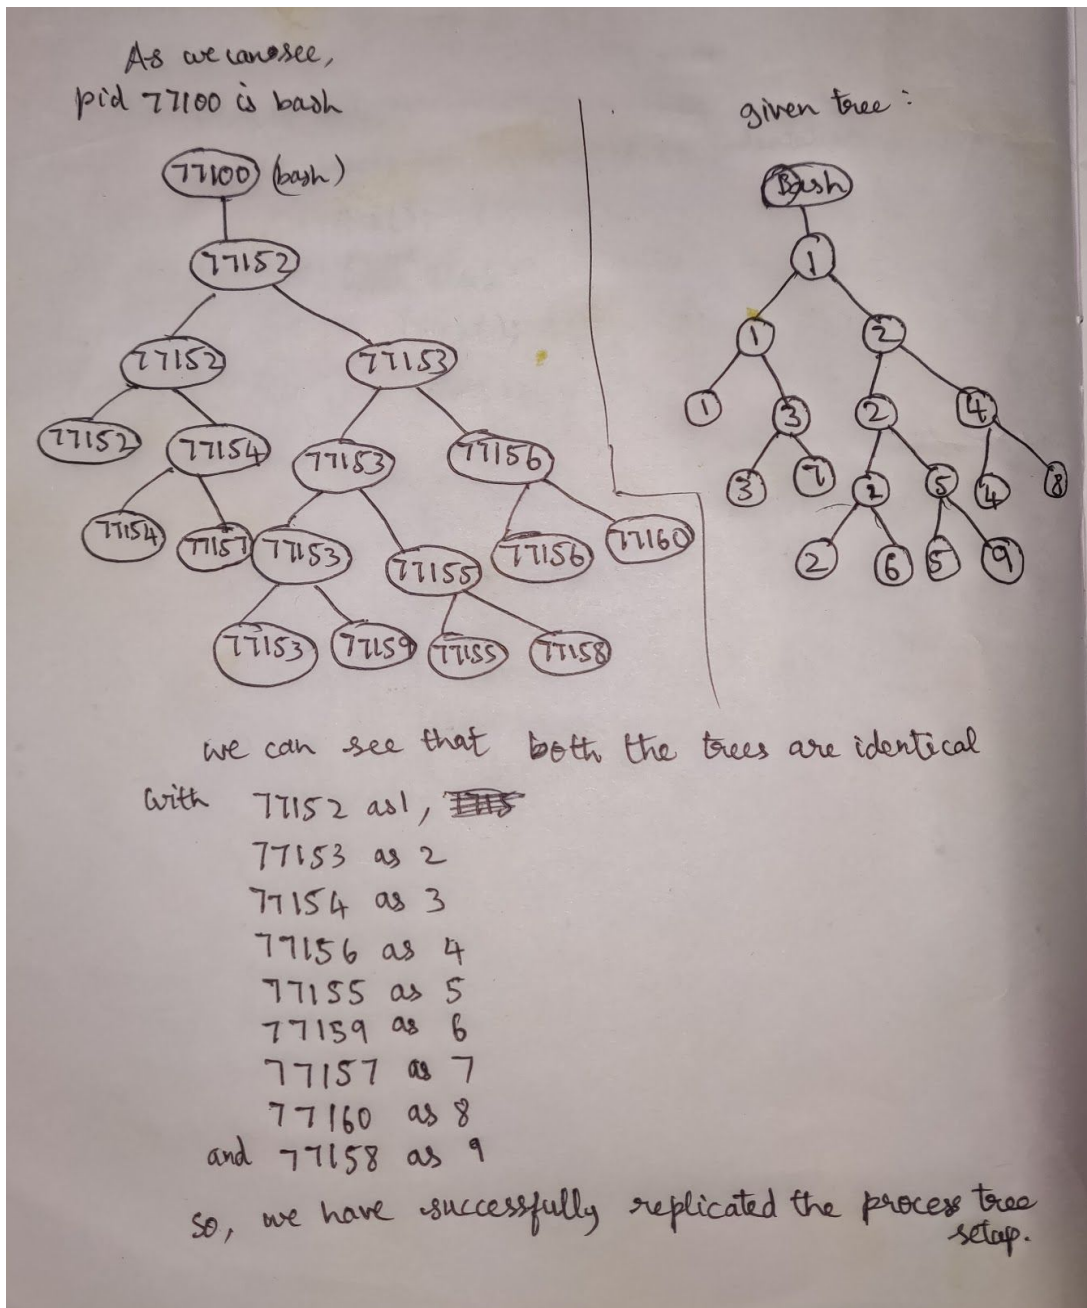 As we can see,
pid 77100 is bash
77100 (bash)
77152
77152 77153
77152 77154 77153 77156
77154 77157 77153 77155 77156 77160
77153 77159 77155 77158
given tree :
Bash
1
1 2
1 3 2 4
3 7 2 5 4 8
2 6 5 9
we can see that both the trees are identical
with 77152 as 1,
77153 as 2
77154 as 3
77156 as 4
77155 as 5
77159 as 6
77157 as 7
77160 as 8
and 77158 as 9
so, we have successfully replicated the process tree
setup.